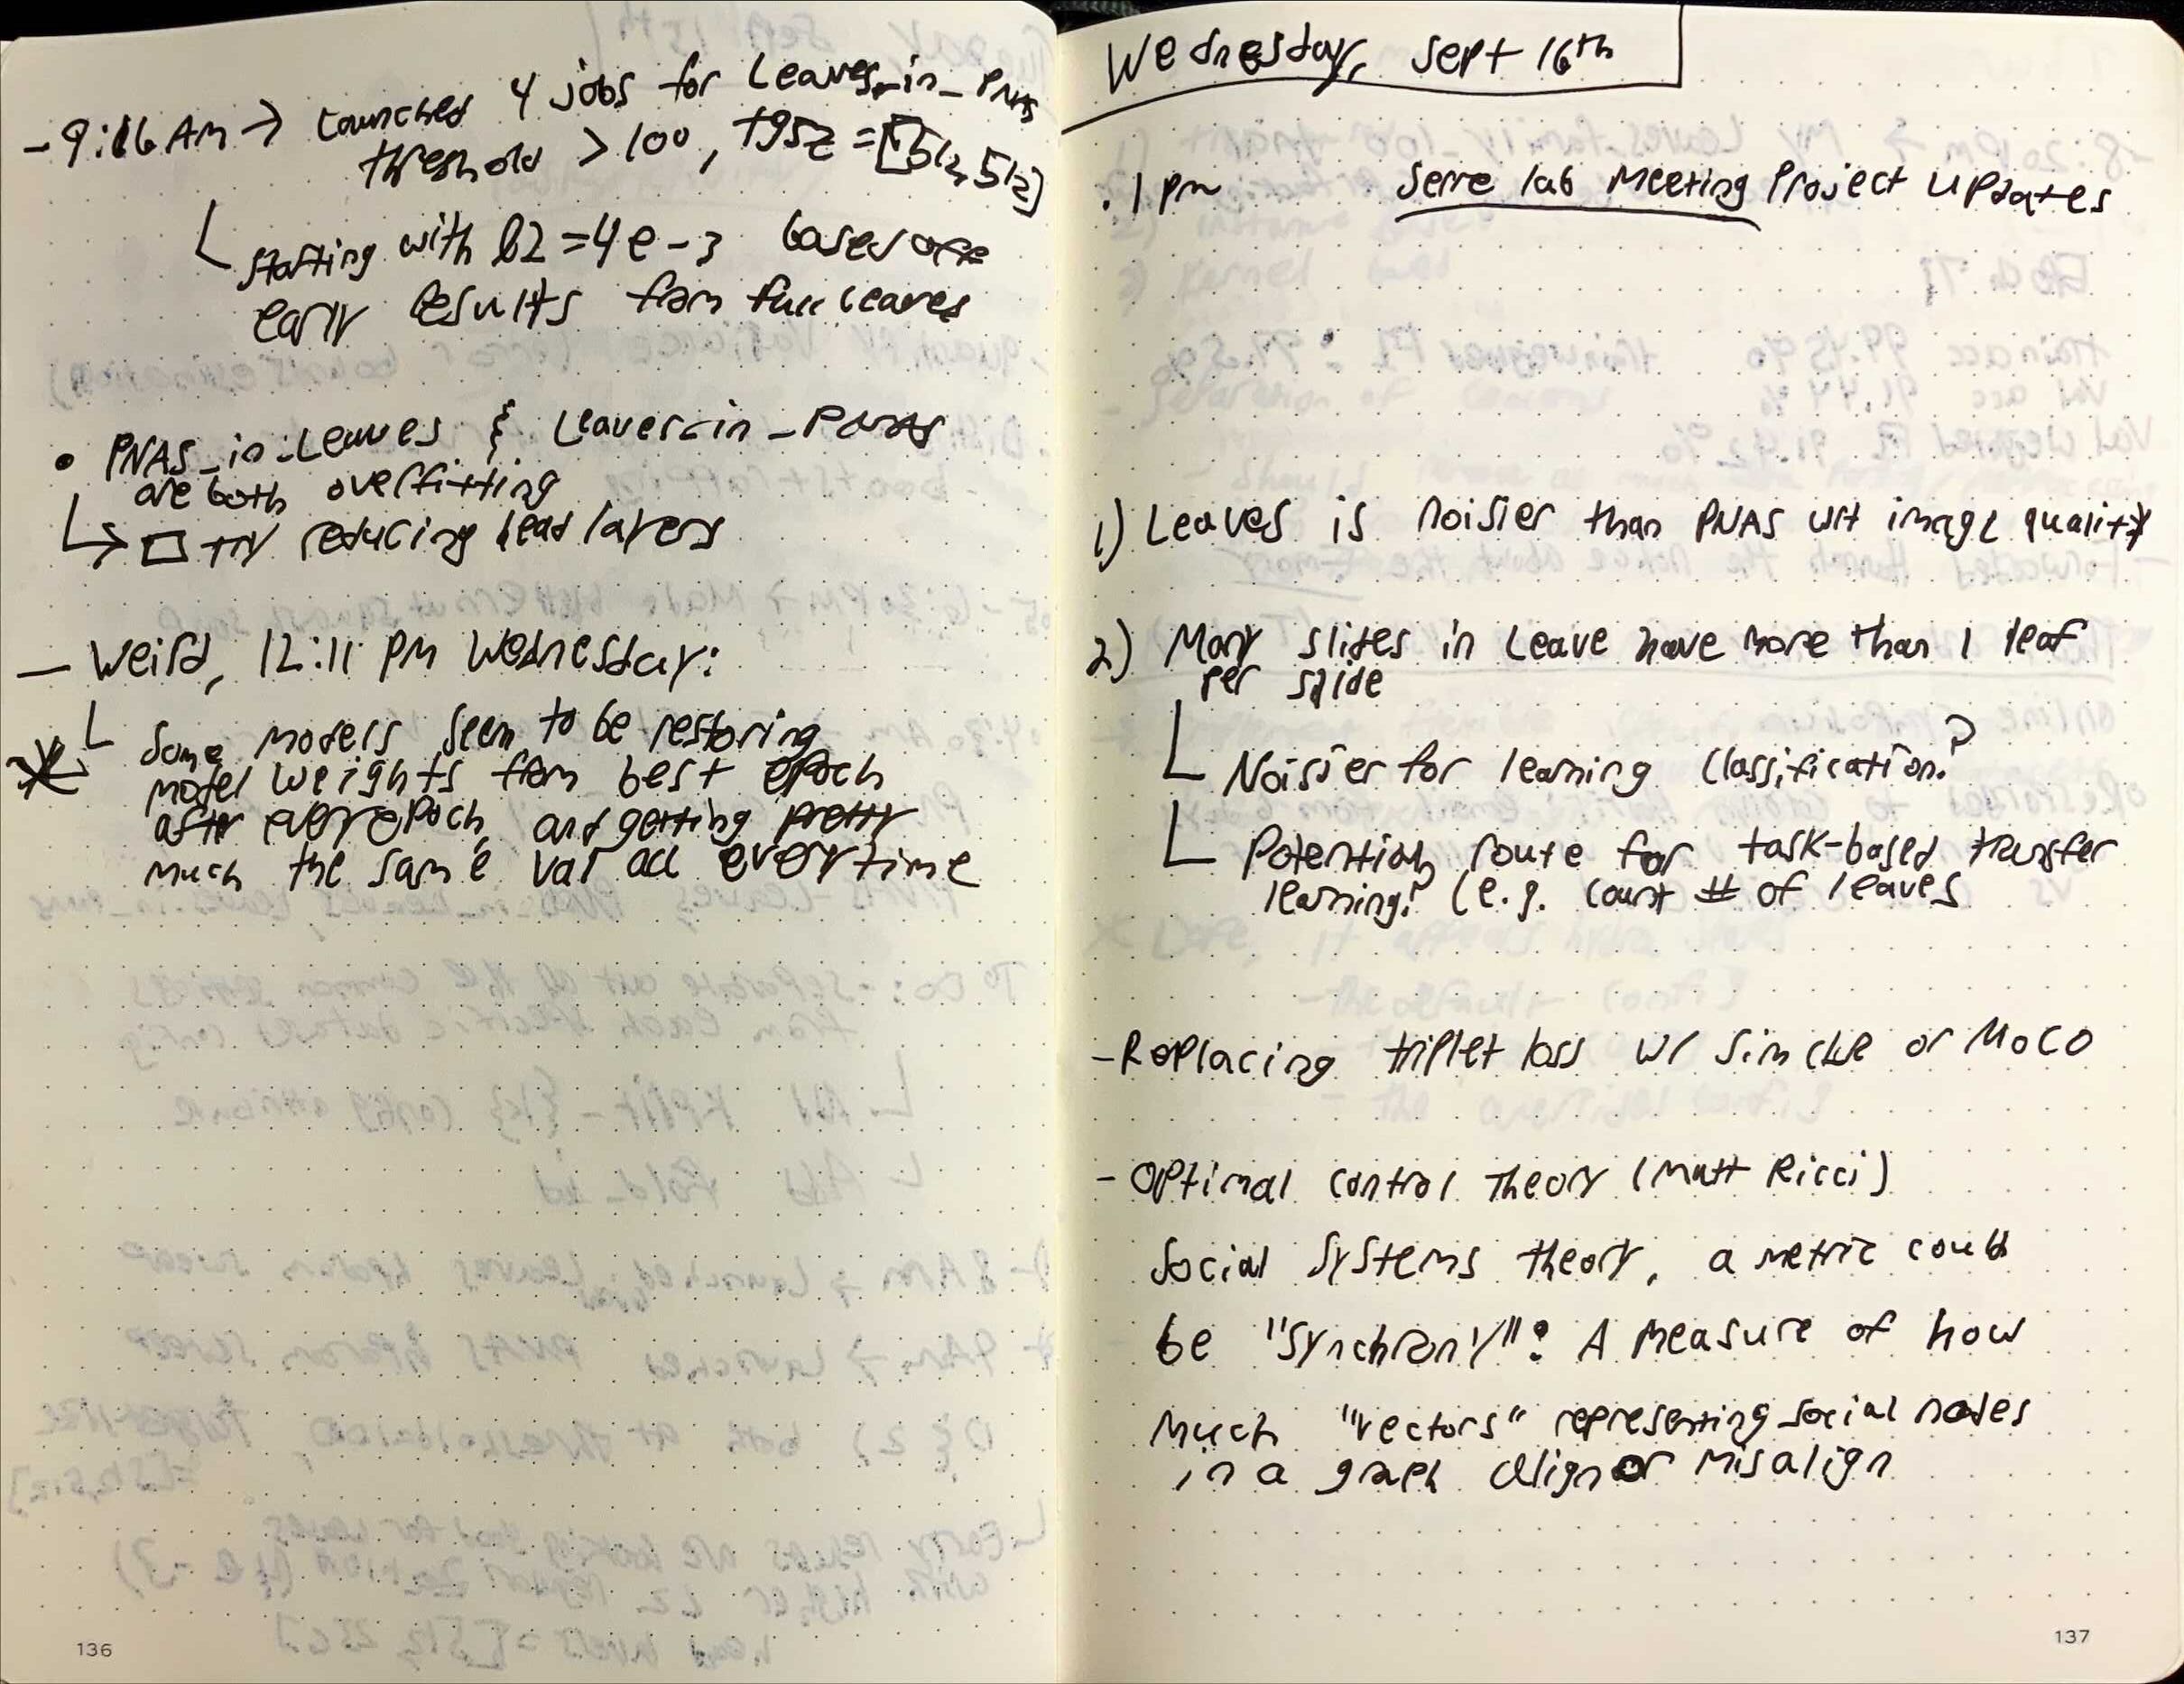 - 9:16 AM → Launched 4 jobs for Leaves_in_PNAS
threshold > 100, tgsz = [512, 512]
starting with l2 = 4e-3 based off
early results from full leaves
• PNAS_in_Leaves & Leaves_in_PNAS
are both overfitting
↳ □ try reducing head layers
- Weird, 12:11 PM Wednesday:
* Some models seem to be restoring
model weights from best epoch
after every epoch, and getting pretty
much the same val acc everytime
136
Wednesday, Sept 16th
. 1 pm Serre lab Meeting Project Updates
1) Leaves is noisier than PNAS wrt image quality
2) Many slides in Leave have more than 1 leaf
per slide
Noisier for learning Classification?
Potential route for task-based transfer
learning? (e.g. count # of leaves
- Replacing triplet loss w/ SimCLR or MoCo
- Optimal control Theory (Matt Ricci)
Social Systems theory, a metric could
be "Synchrony": A measure of how
much "vectors" representing social nodes
in a graph align or misalign
137